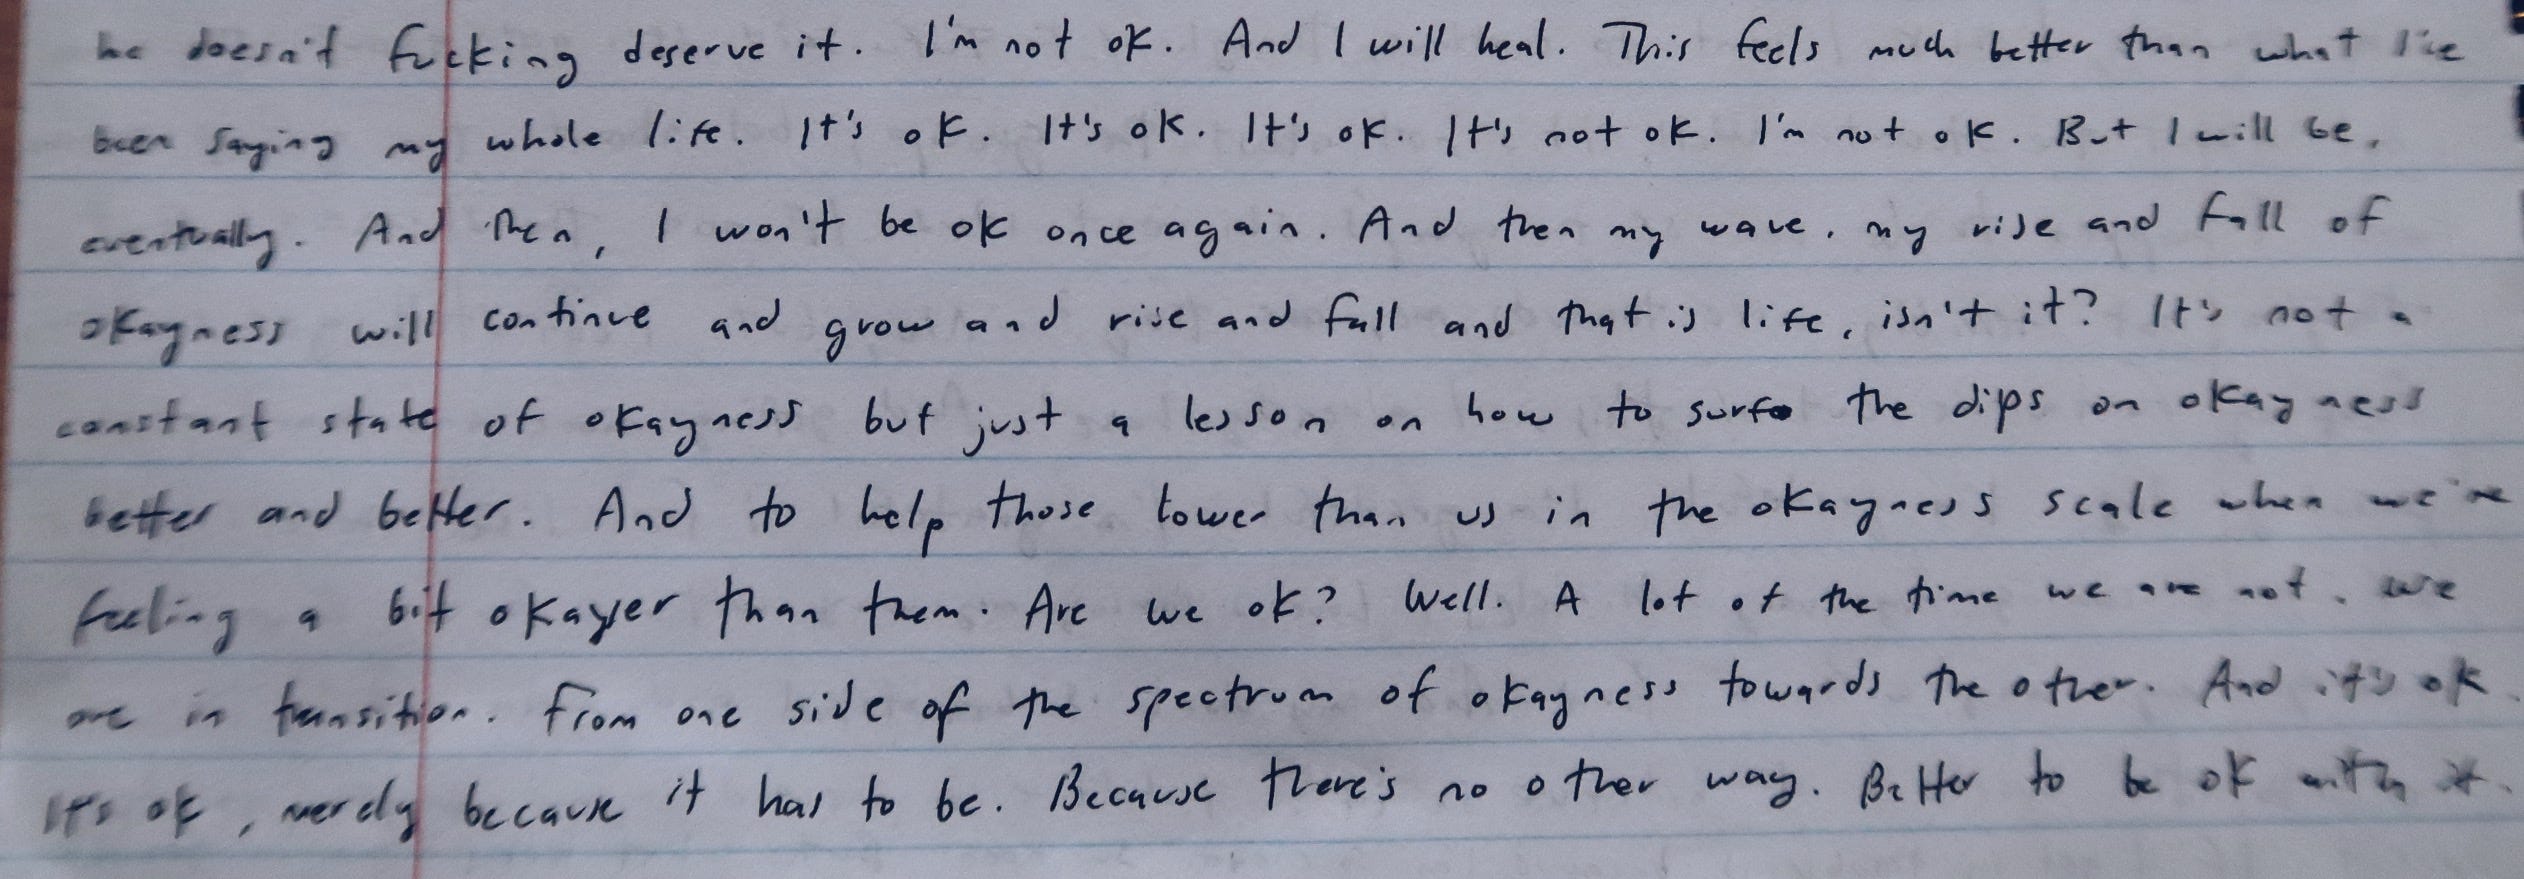 he doesn't fucking deserve it. I'm not ok. And I will heal. This feels much better than what I've
been saying my whole life. It's ok. It's ok. It's ok. It's not ok. I'm not ok. But I will be,
eventually. And then, I won't be ok once again. And then my wave, my rise and fall of
okayness will continue and grow and rise and fall and that is life, isn't it? It's not a
constant state of okayness but just a lesson on how to surf the dips on okayness
better and better. And to help those lower than us in the okayness scale when we're
feeling a bit okayer than them. Are we ok? Well. A lot of the time we are not. We
are in transition. From one side of the spectrum of okayness towards the other. And it's ok.
It's ok, merely because it has to be. Because there's no other way. Better to be ok with it.